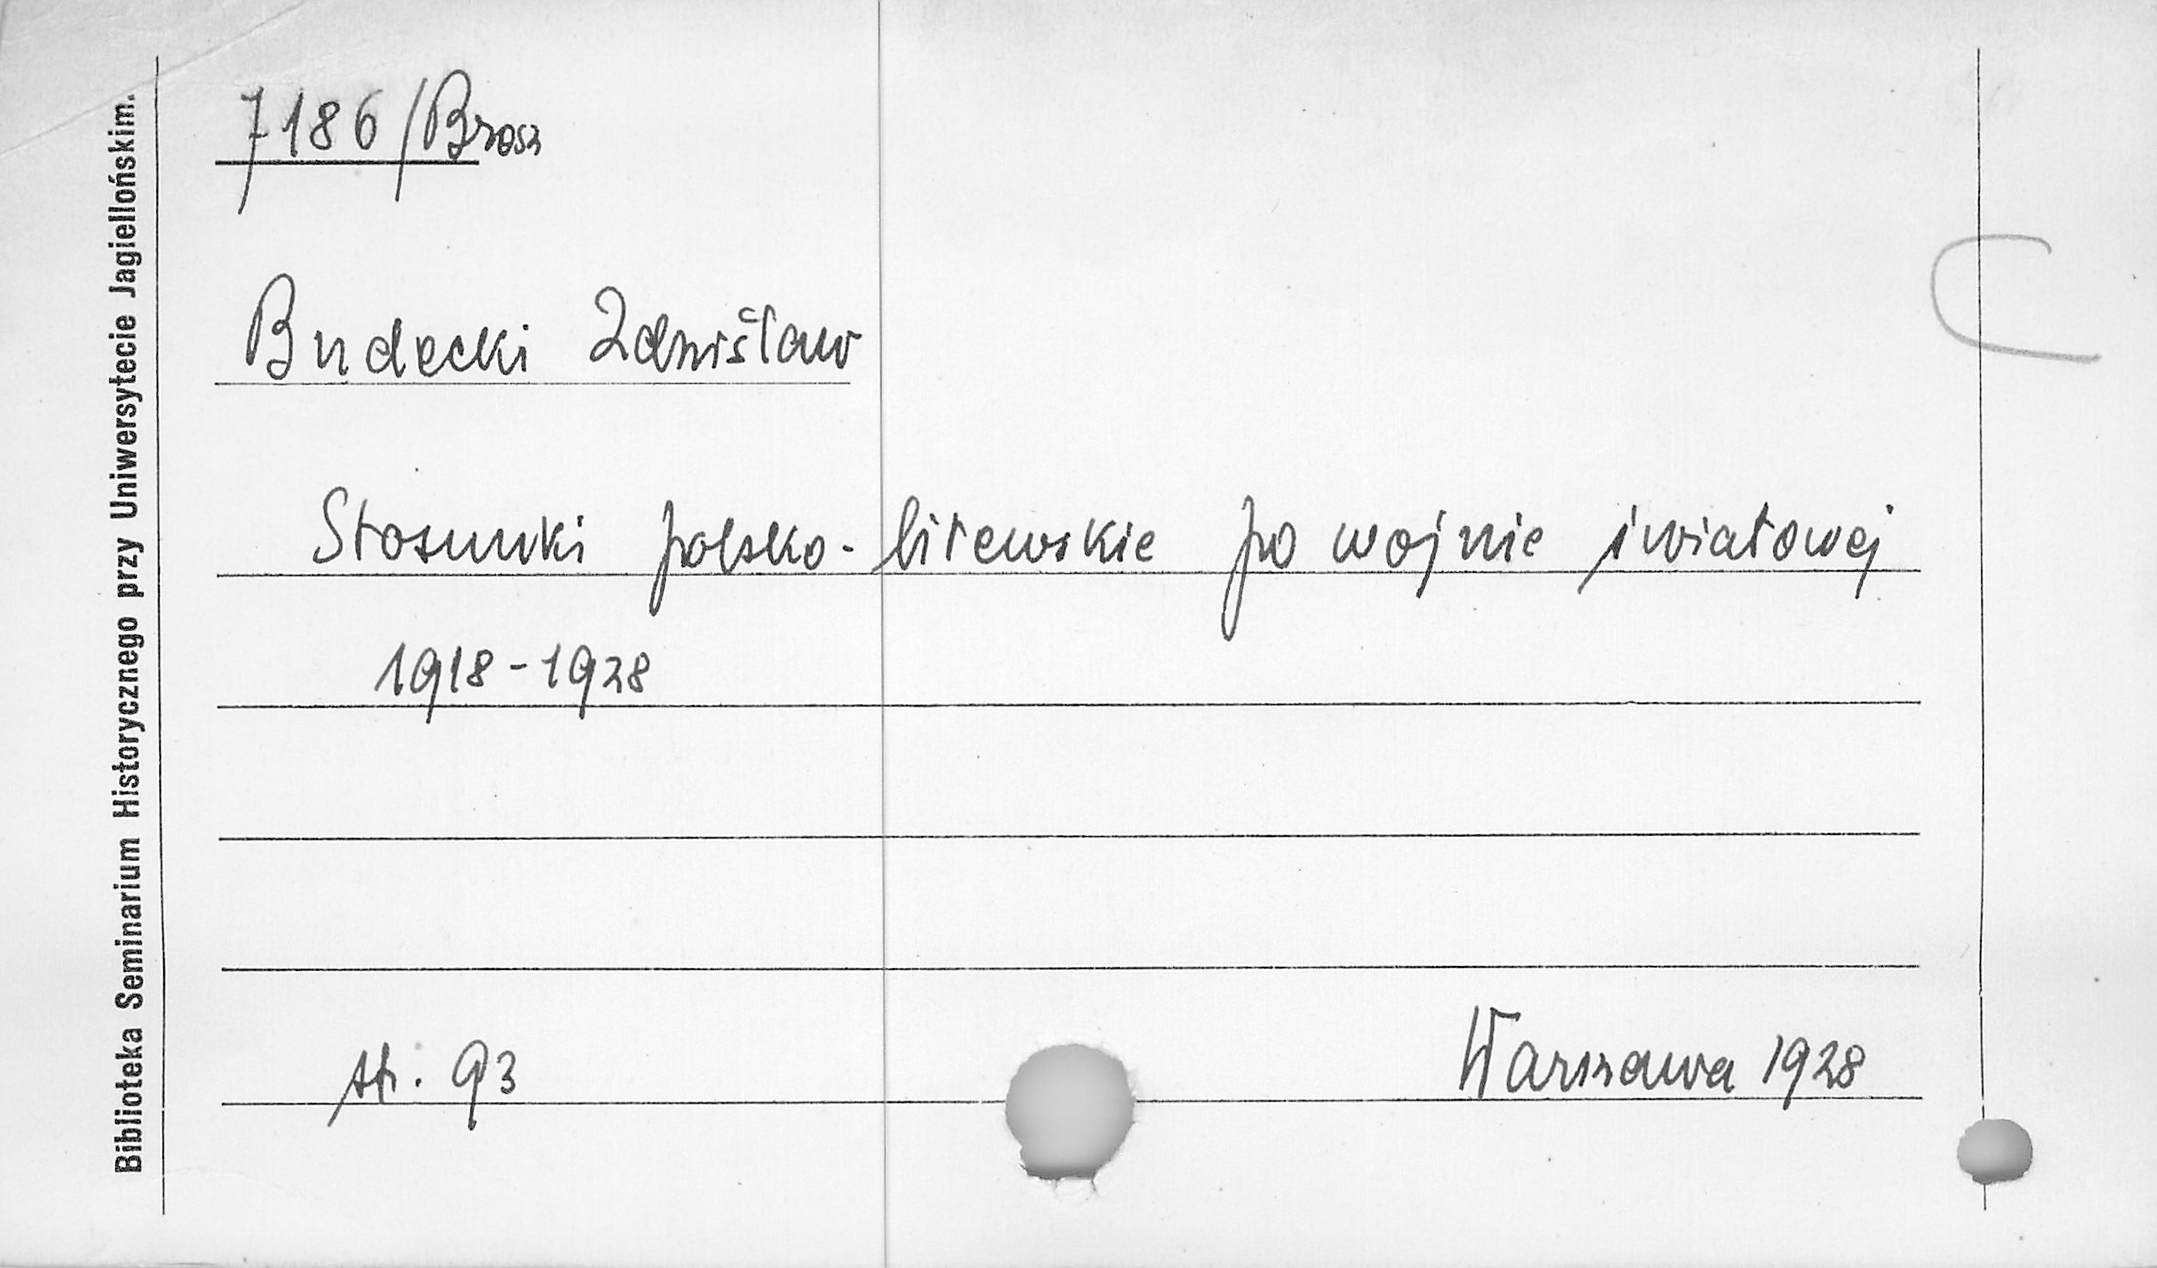 7186/Brosz
Budecki Zdzisław
Stosunki polsko-litewskie po wojnie światowej
1918-1928
str. 93
Warszawa 1928
Biblioteka Seminarium Historycznego przy Uniwersytecie Jagiellońskim.